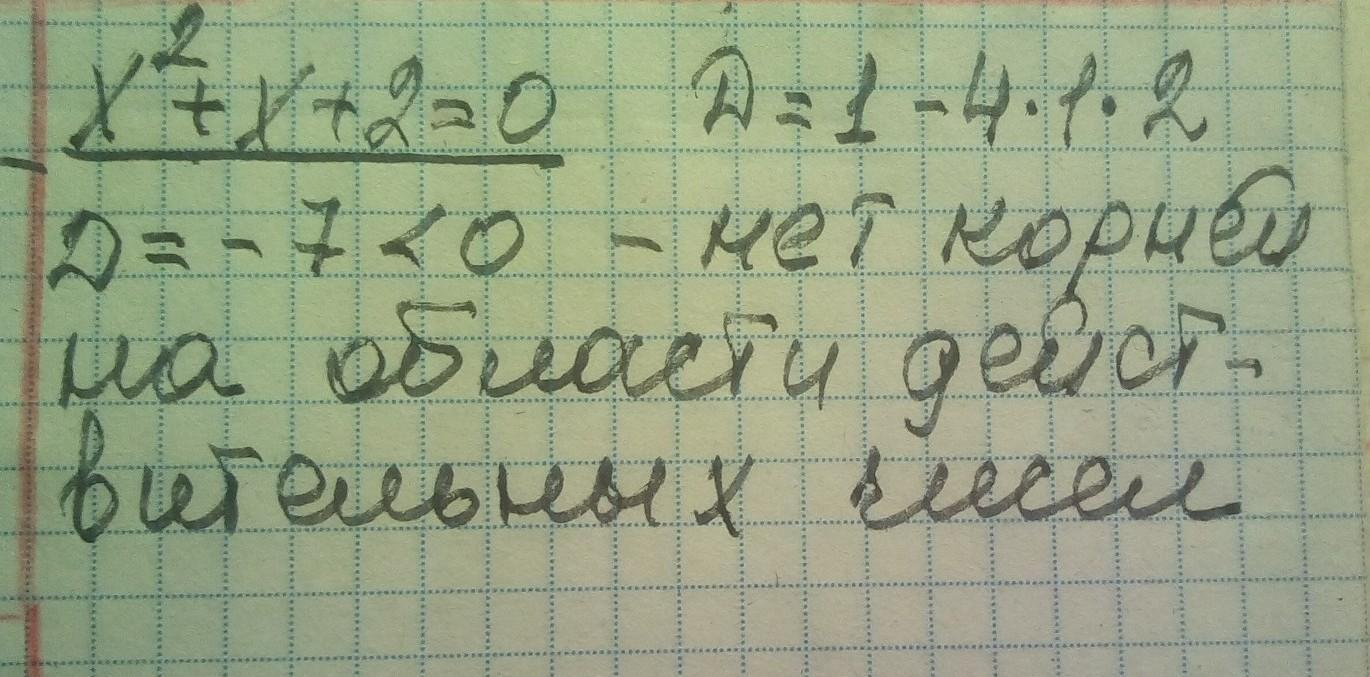 x²+x+2=0 D=1-4·1·2
D=-7<0 - нет корней
на области дейст-
вительных чисел